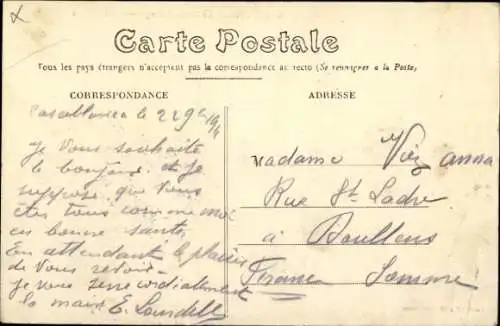 Carte Postale
Tous les pays étrangers n'acceptent pas la correspondance au recto (Se renseigner a la Poste)
CORRESPONDANCE
ADRESSE
Casablanca le 22 9e 1914
je Vous souhaite
le bonjour et je
suppose que Vous
êtes tous comme moi
en bonne santé
En attendant le plaisir
de Vous revoir
je Vous serre cordialement
la main E.
Madame Anna
Rue St Ladre
a Doullens
France Somme